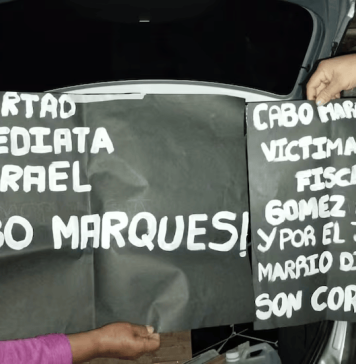 RTAD
EDIATA
RAEL
O MARQUES!
CABO MAR
VICTIMA
FISCA
GOMEZ
Y POR EL
MARRIO DI
SON COR